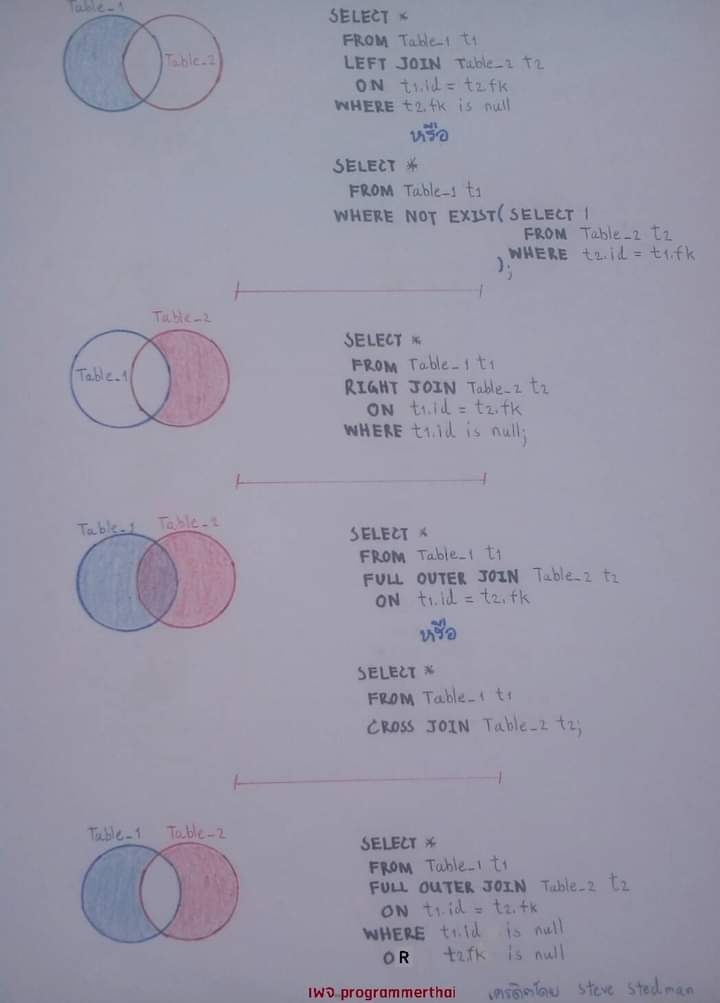 Table_1
Table_2
SELECT *
FROM Table_1 t1
LEFT JOIN Table_2 t2
ON t1.id = t2.fk
WHERE t2.fk is null
หรือ
SELECT *
FROM Table_1 t1
WHERE NOT EXIST( SELECT 1
FROM Table_2 t2
WHERE t2.id = t1.fk
);
Table_2
Table_1
SELECT *
FROM Table_1 t1
RIGHT JOIN Table_2 t2
ON t1.id = t2.fk
WHERE t1.id is null;
Table_1 Table_2
SELECT *
FROM Table_1 t1
FULL OUTER JOIN Table_2 t2
ON t1.id = t2.fk
หรือ
SELECT *
FROM Table_1 t1
CROSS JOIN Table_2 t2;
Table_1 Table_2
SELECT *
FROM Table_1 t1
FULL OUTER JOIN Table_2 t2
ON t1.id = t2.fk
WHERE t1.id is null
OR t2.fk is null
เพจ programmerthai
เครดิตโดย Steve Stedman